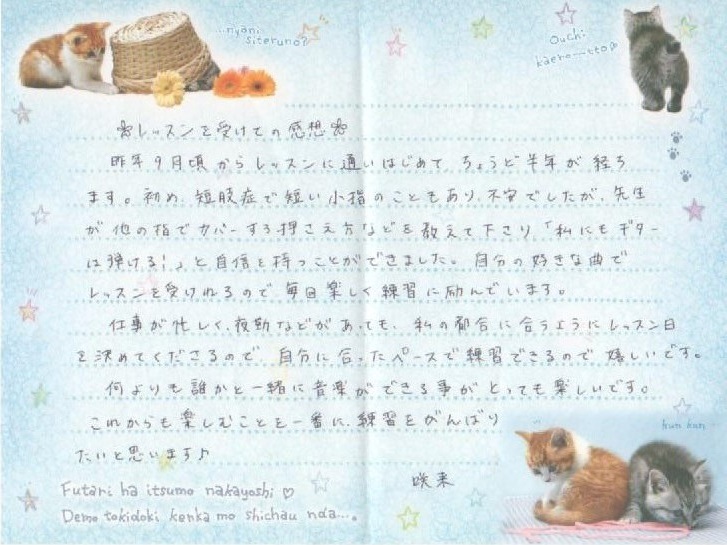 ...nyani
siteruno?
Ouchi
kaero---tto♪
❀レッスンを受けての感想❀
昨年9月頃からレッスンに通いはじめて、ちょうど半年が経ち
ます。初め、短肢症で短い小指のこともあり、不安でしたが、先生
が他の指でカバーする押さえ方などを教えて下さり、「私にもギター
は弾ける!」と自信を持つことができました。自分の好きな曲で
レッスンを受けれるので毎回楽しく練習に励んでいます。
仕事が忙しく、夜勤などがあっても、私の都合に合うようにレッスン日
を決めてくださるので、自分に合ったペースで練習できるので嬉しいです。
何よりも誰かと一緒に音楽ができる事がとっても楽しいです。
これからも楽しむことを一番に、練習をがんばり
たいと思います♪
kun kun
咲来
Futari ha itsumo nakayoshi ♡
Demo tokidoki kenka mo shichau nda...。